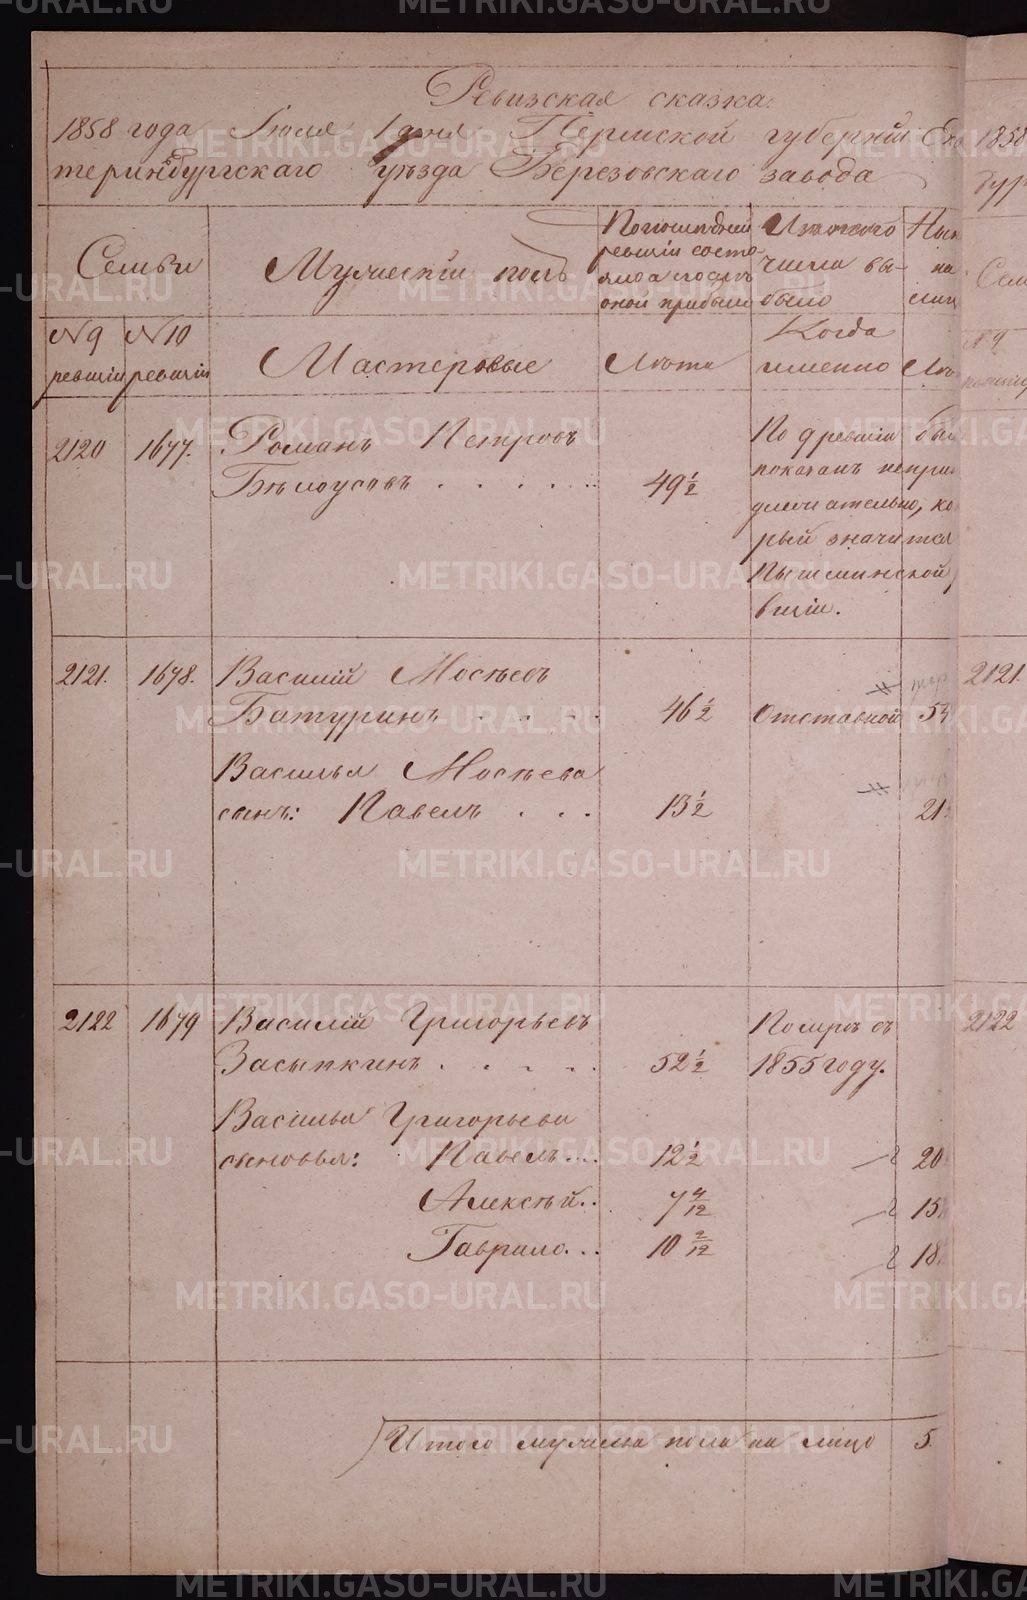 Ревизская сказка.
1858 года Іюля 1 дня Пермской губерніи Ека
теринбургскаго уѣзда Березовскаго завода
Семьи
Мужескій полъ
По послѣдней
ревизіи состо-
яло а послѣ
оной прибыло
Изъ того
числа вы-
было
Нын
на
лиц
№ 9
ревизіи
№ 10
ревизіи
Мастеровые
Лѣта
Когда
именно
Лѣ
2120 1677. Романъ Петровъ
Бѣлоусовъ . . . . . . 49 1/2
По 9 ревизіи был
показанъ непри
длежательно, ко
рый значится
Пышминской
визіи.
2121. 1678. Василій Мосѣевъ
Батуринъ . . . . 46 1/2 Отставной 53
Василья Мосѣева
сынъ: Павелъ . . . 13 1/2 21
2122 1679 Василій Григорьевъ Померъ въ
Засыпкинъ . . . . . 52 1/2 1855 году.
Василья Григорьева
сыновья: Павелъ... 12 1/2 20
Алексѣй.. 7 4/12 15
Гаврило... 10 2/12 18
Итого мужеска пола на лицо 5
1858
бур
Сем
№ 9
2121.
2122
METRIKI.GASO-URAL.RU